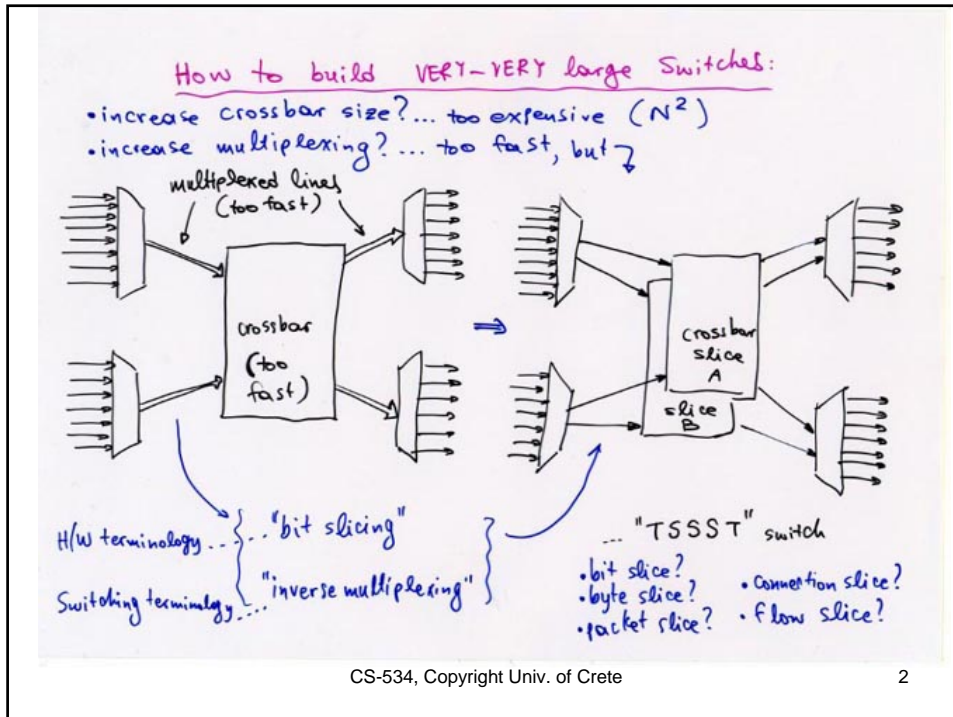 How to build VERY-VERY large Switches:
• increase crossbar size?... too expensive (N²)
• increase multiplexing?... too fast, but
multiplexed lines
(too fast)
crossbar
(too
fast)
⇒
crossbar
slice
A
slice
B
H/W terminology... "bit slicing"
Switching terminology... "inverse multiplexing"
... "TSSST" switch
• bit slice?
• byte slice?
• packet slice?
• connection slice?
• flow slice?
CS-534, Copyright Univ. of Crete
2